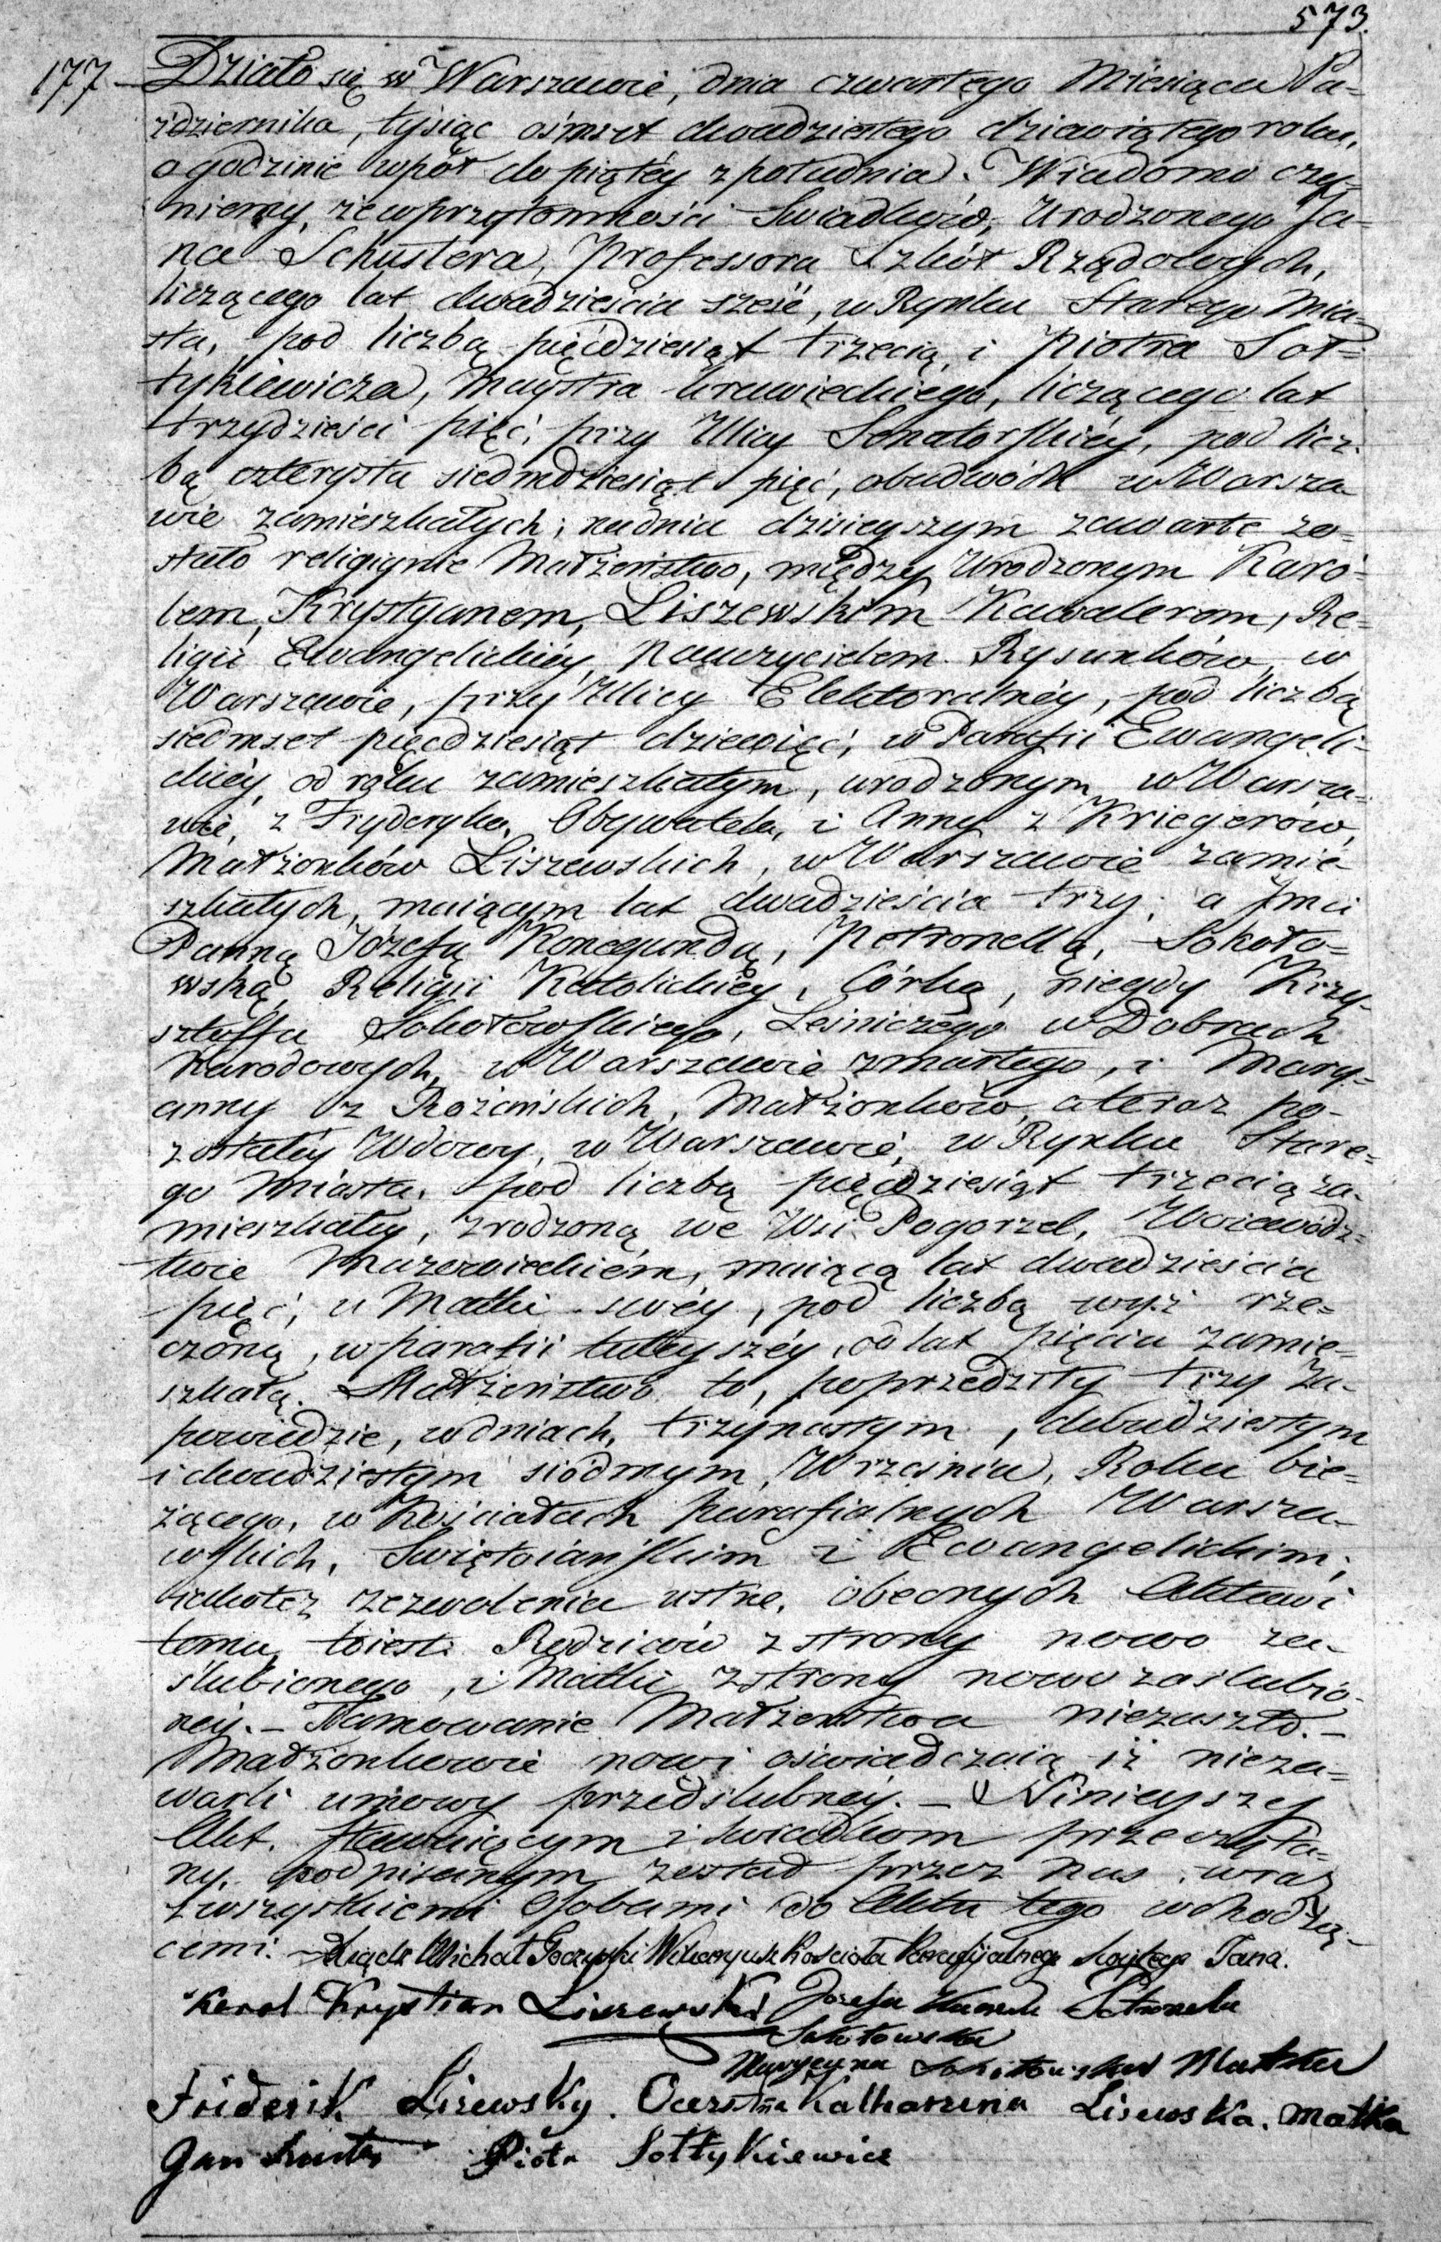 573.
177. Działo się w Warszawie, dnia czwartego Miesiąca Pa-
zdziernika, tysiąc ośmset dwudziestego dziewiątego roku,
o godzinie wpół do piątéy z południa. Wiadomo czy-
niemy, że w przytomności Swiadków, Urodzonego Ja-
na Schustera, Professora Szkół Rządowych,
liczącego lat dwadzieścia sześć, w Rynku Starego Mia-
sta, pod liczbą pięćdziesiąt trzecią i Piotra Soł-
tykiewicza, Maystra krawieckiego, liczącego lat
trzydzieści pięć, przy Ulicy Senatorskiéy, pod licz-
bą czterysta siedmdziesiąt pięć, obudwóch w Warsza
wie zamieszkałych; na dniu dzisieyszym zawarte zo-
stało religiynie Małżeństwo, między Urodzonym Karo-
lem, Krystyanem, Liszewskim Kawalerem, Re-
ligii Ewangelickiéy, Nauczycielem Rysunków, w
Warszawie, przy Ulicy Elektoralnéy, pod liczbą
siedmset pięćdziesiąt dziewięć, w Parafii Ewangeli-
ckiéy, od roku zamieszkałym, urodzonym w Warsza-
wie, z Fryderyka, Obywatela, i Anny z Kriegerów,
Małżonków Liszewskich, w Warszawie zamie-
szkałych, maiącym lat dwadzieścia trzy; a Jmci
Panną Józefą Konegundą, Petronellą, Sokoło-
wską, Religii Katolickiéy, Córką, niegdy Krzy-
sztoffa Sokołowskiego, Leśniczego w Dobrach
Narodowych, w Warszawie zmarłego, i Mary-
anny z Rożańskich, Małżonków, a teraz po-
zostałéy Wdowy, w Warszawie, w Rynku Stare-
go Miasta, pod liczbą pięćdziesiąt trzecią za-
mieszkałéy, zrodzoną we Wsi Pogorzel, Woiewódz-
twie Mazowieckiém, maiącą lat dwadzieścia
pięć, u Matki swéy, pod liczbą wyż rze-
czoną, w parafii tuteyszéy, od lat pięciu zamie-
szkałą. Małżeństwo to, poprzedziły trzy Za-
powiedzie, w dniach, trzynastym, dwudziestym
i dwudziestym siódmym, Września, Roku bie-
żącego, w Kościołach parafialnych Warsza-
wskich, Swiętoiańskim i Ewangelickim;
iako też zezwolenia ustne, obecnych Aktowi
temu, toiest: Rodziców z strony nowo za-
ślubionego, i Matki z strony nowo zaślubio-
néy. — Tamowanie Małżeństwa niezaszło. —
Małżonkowie nowi oświadczaią iż nieza-
warli umowy przedślubnéy. — Ninieyszy
Akt, stawaiącym i świadkom przeczyta-
ny, podpisanym został przez nas, wraz
z wszystkiemi Osobami do Aktu tego wchodzą-
cemi. — Xiądz Michał Wikaryusz Kościoła Parafijalnego Świętego Jana.
Karol Krystian Liszewski Józefa Petronela
Sokołowska
Maryanna Sokołowska Matka
Friderik Lisewsky. Katharzena Lisewska. Matka
Jan Piotr Sołtykiewicz